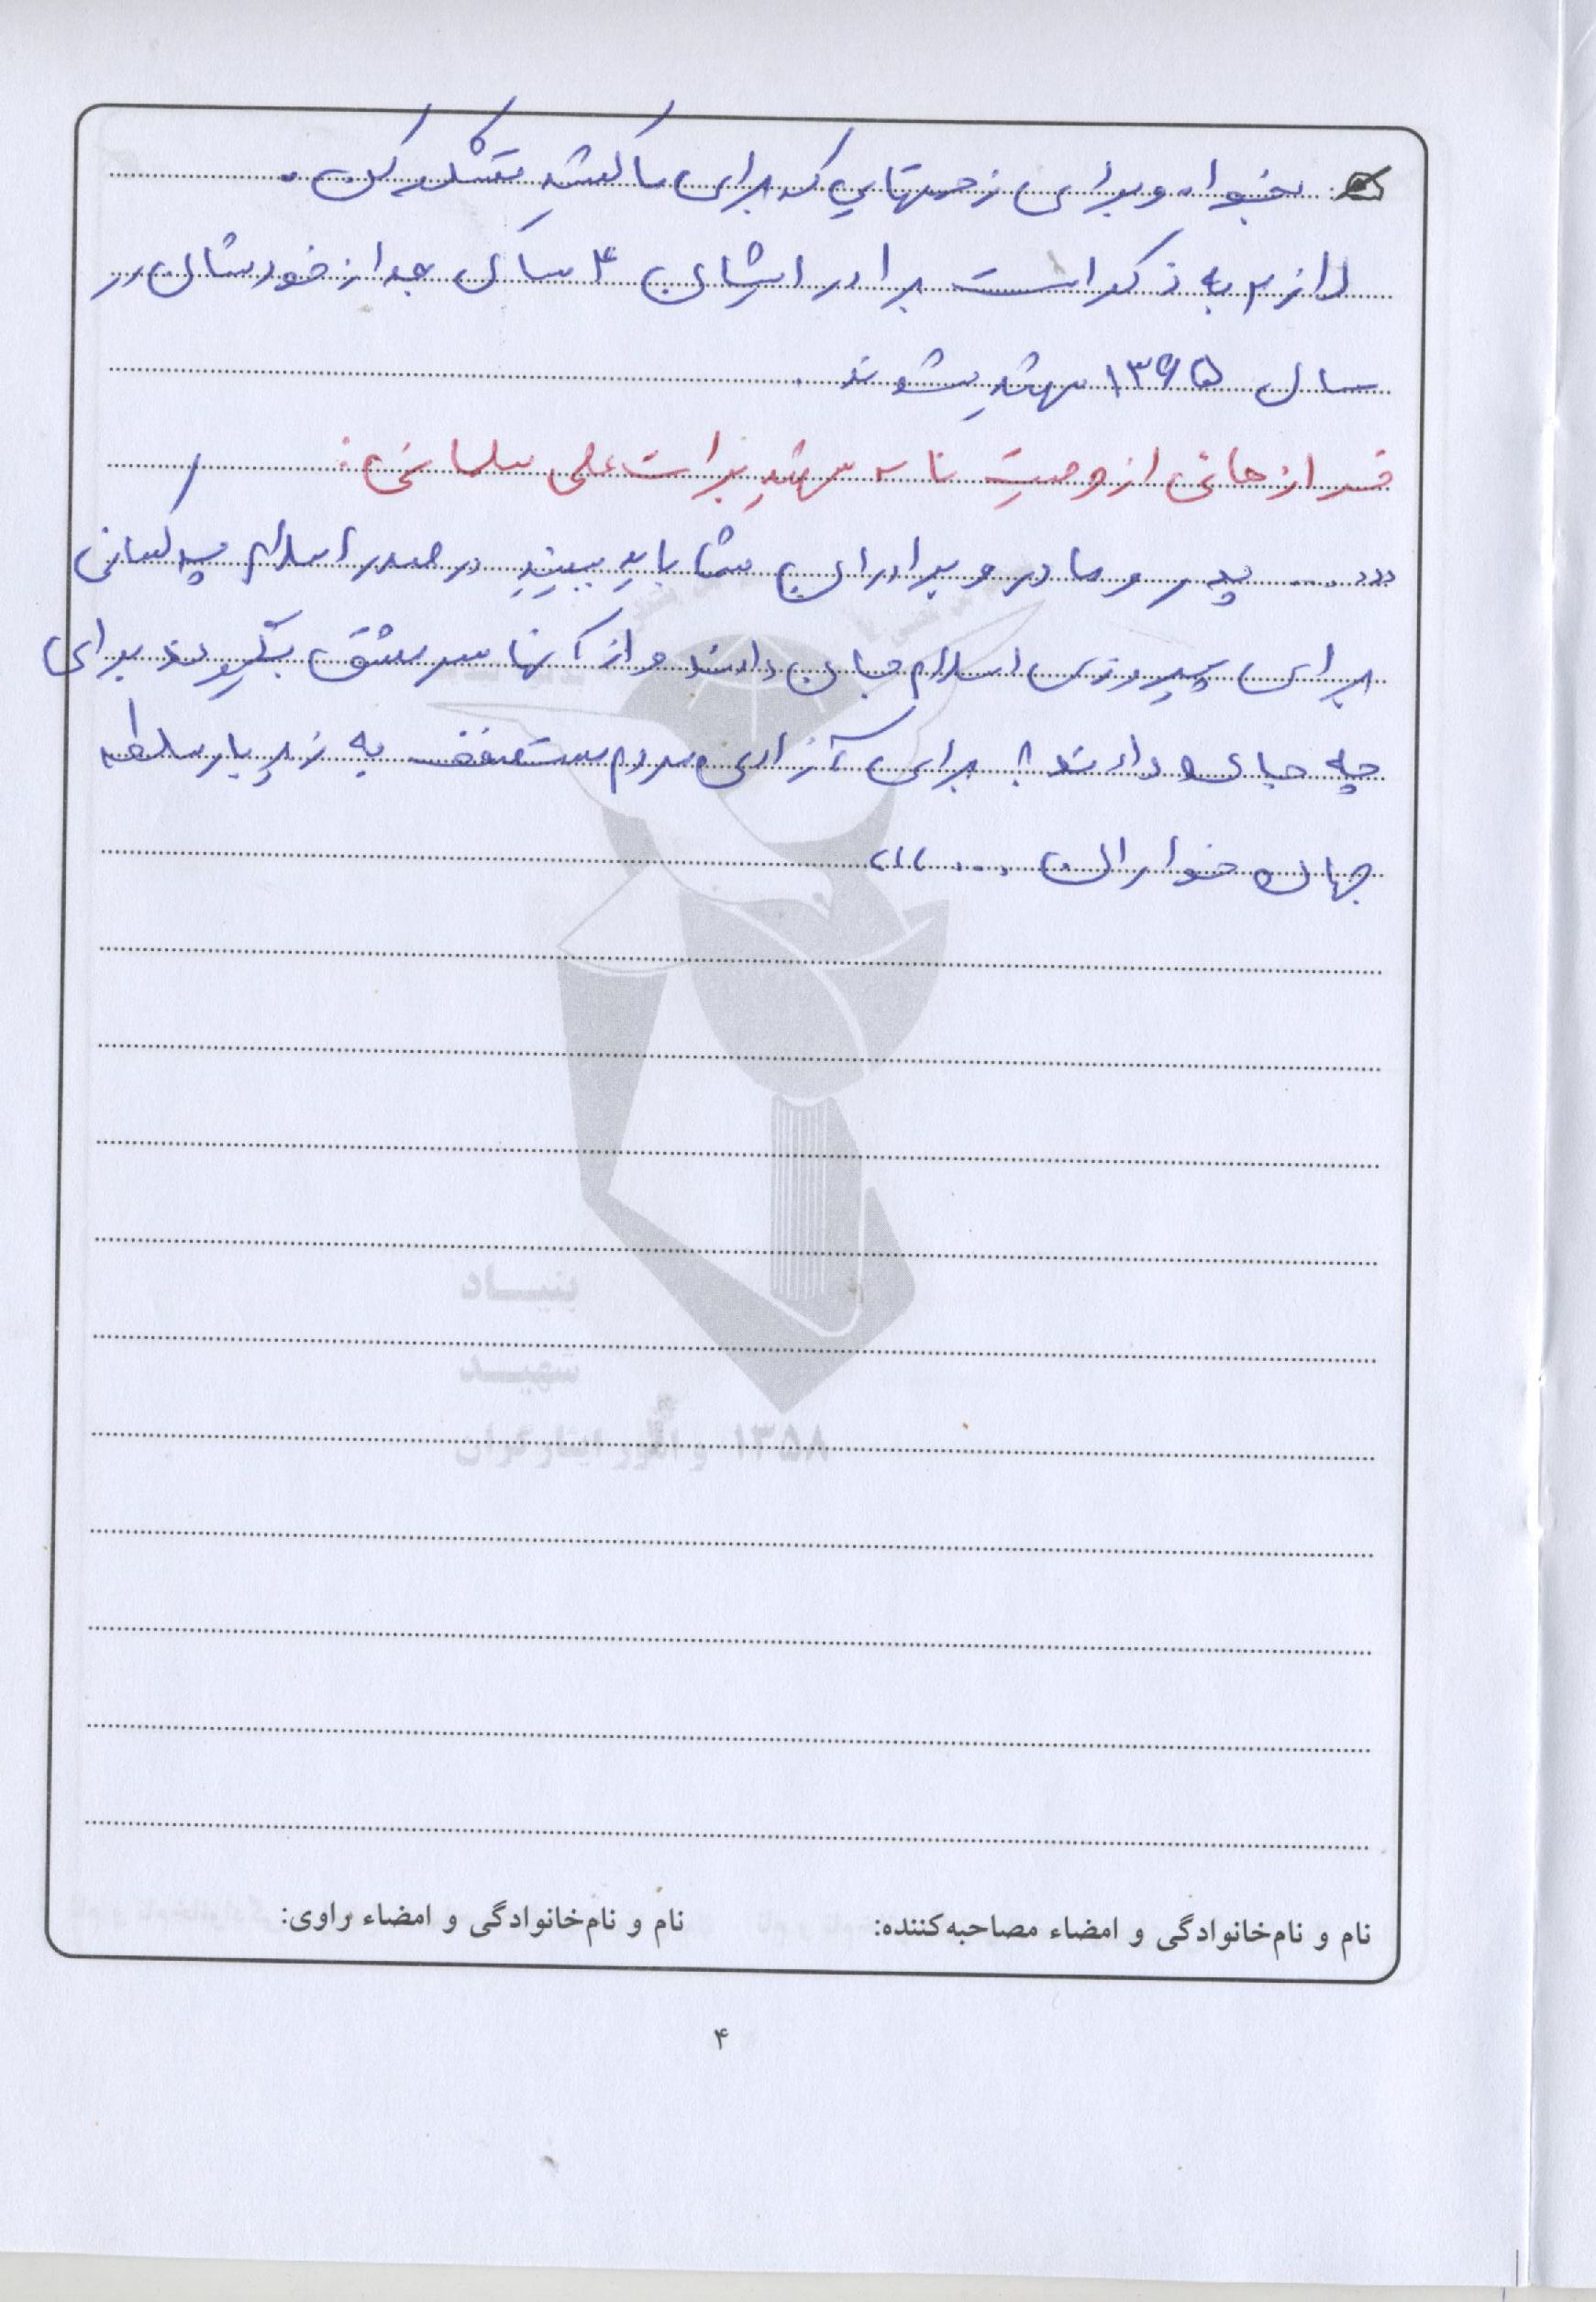 بخواه و برای زحمتهایی که برای ما کشید تشکر کن.
لازم به ذکر است برادر ایشان ۴ سال بعد از خودشان در
سال ۱۳۶۵ شهید میشوند.
فرازهائی از وصیت نامه شهید براتعلی سلمانی:
،،،.... پدر و مادر و برادران شما باید ببینید در صدر اسلام چه کسانی
برای پیروزی اسلام جان دادند و از آنها سرمشق بگیرید برای
چه جان دادند؟ برای آزادی مردم مستضعف به زیر بار سلطه
جهان خواران ...،،،
بنیاد
شهید
و امور ایثارگران ۱۳۵۸
نام و نام‌خانوادگی و امضاء مصاحبه‌کننده: نام و نام‌خانوادگی و امضاء راوی:
۴